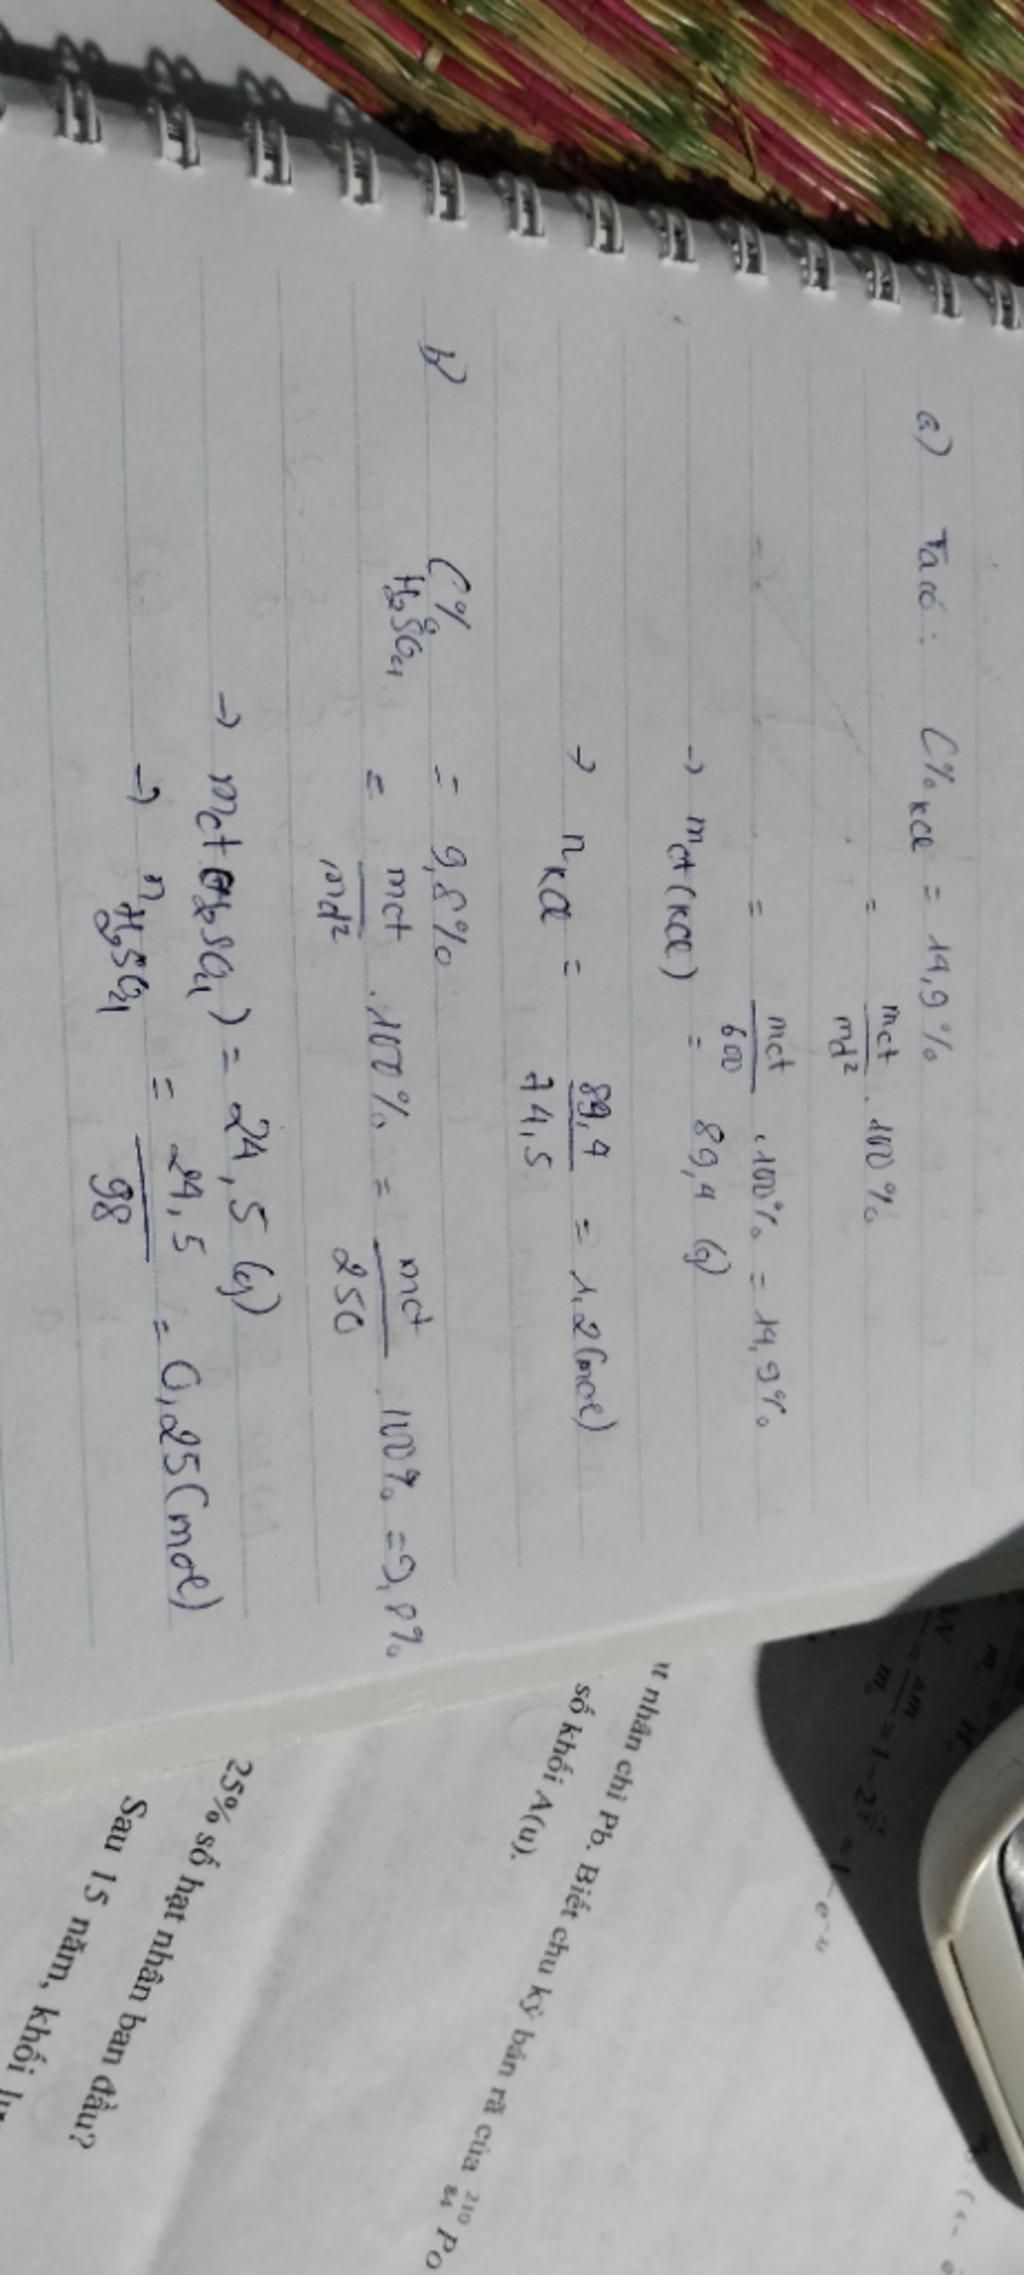 a) Ta có : C% KCl = 14,9%
= mct/md² . 100%
= mct/600 . 100% = 14,9%
→ mct (KCl) = 89,4 (g)
→ nKCl = 89,4/74,5 = 1,2 (mol)
b) C% H2SO4 = 9,8%
= mct/md² . 100% = mct/250 . 100% = 9,8%
→ mct (H2SO4) = 24,5 (g)
→ nH2SO4 = 24,5/98 = 0,25 (mol)
nhân chì Pb. Biết chu kỳ bán rã của ²¹⁰₈₄Po
số khối A(u).
25% số hạt nhân ban đầu?
Sau 15 năm, khối